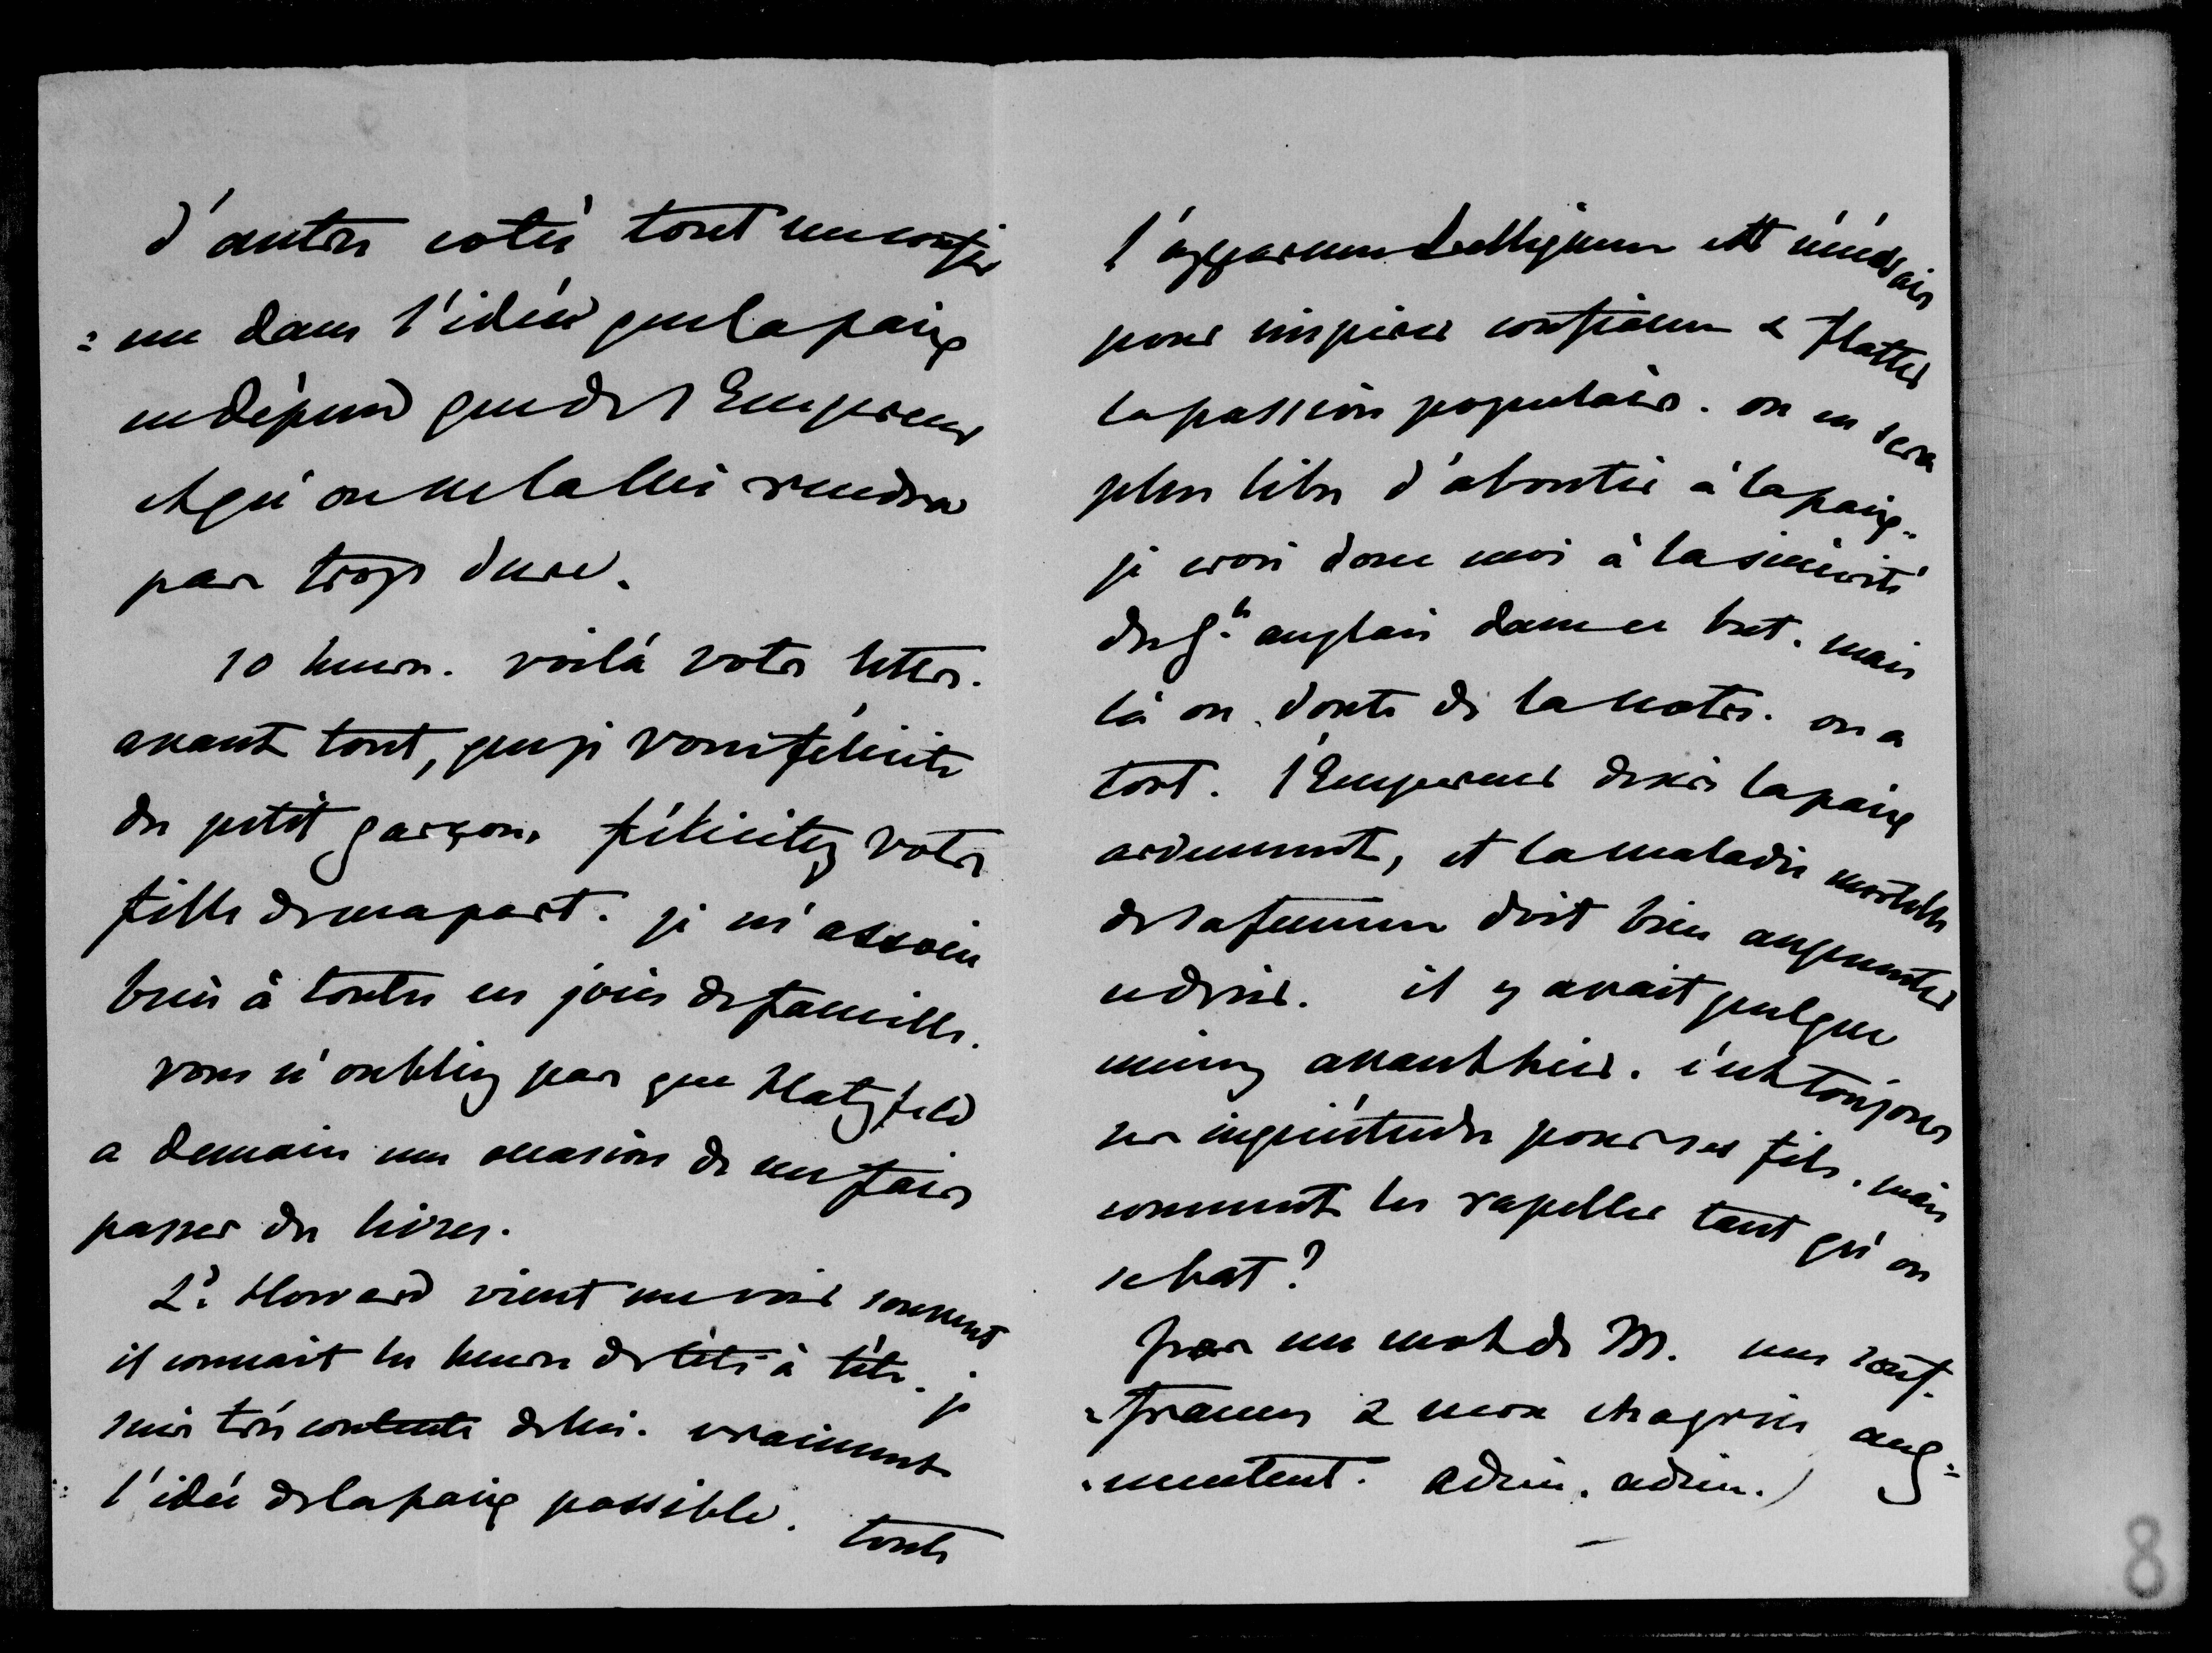 d'autres cotés tout me confir
= me dans l'idée que la paix
ne dépend que de l'Empereur
et qu'on ne la lui rendra
pas trop dure.
10 heures. voilà votre lettre.
avant tout, que je vous félicite
du petit garçon. félicitez votre
fille de ma part. je m'associe
bien à toutes ces joies de famille.
vous n'oubliez pas que Hatzfeld
a demain une occasion de me faire
passer du livres.
Ld. Howard vient me voir souvent
il connait les heures de tête à tête. je
suis très contente de lui. vraiment
l'idée de la paix possible. toute
l'apparence belliqueuse est nécessaire
pour inspirer confiance & flatter
la passion populaire. on en sera
plus libre d'aboutir à la paix.
je crois donc moi à la sincérité
du gt. anglais dans ce but. mais
là on doute de la notre. on a
tort. l'Empereur desire la paix
ardemment, et la maladie mortelle
de sa femme doit bien augmenter
ce désir. il y avait quelque
mieux avant hier. c'est toujours
ses inquiétudes pour ses fils. mais
comment les rapeller tant qu'on
se bat?
pas un mot de M. mes souf-
= frances & mon chagrin aug=
= mentent. adieu. adieu.)
8